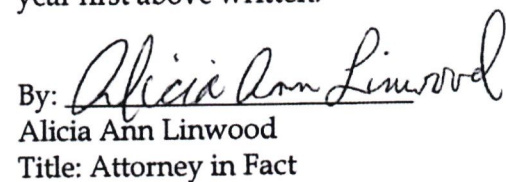 year first above written.
By: Alicia Ann Linwood
Alicia Ann Linwood
Title: Attorney in Fact